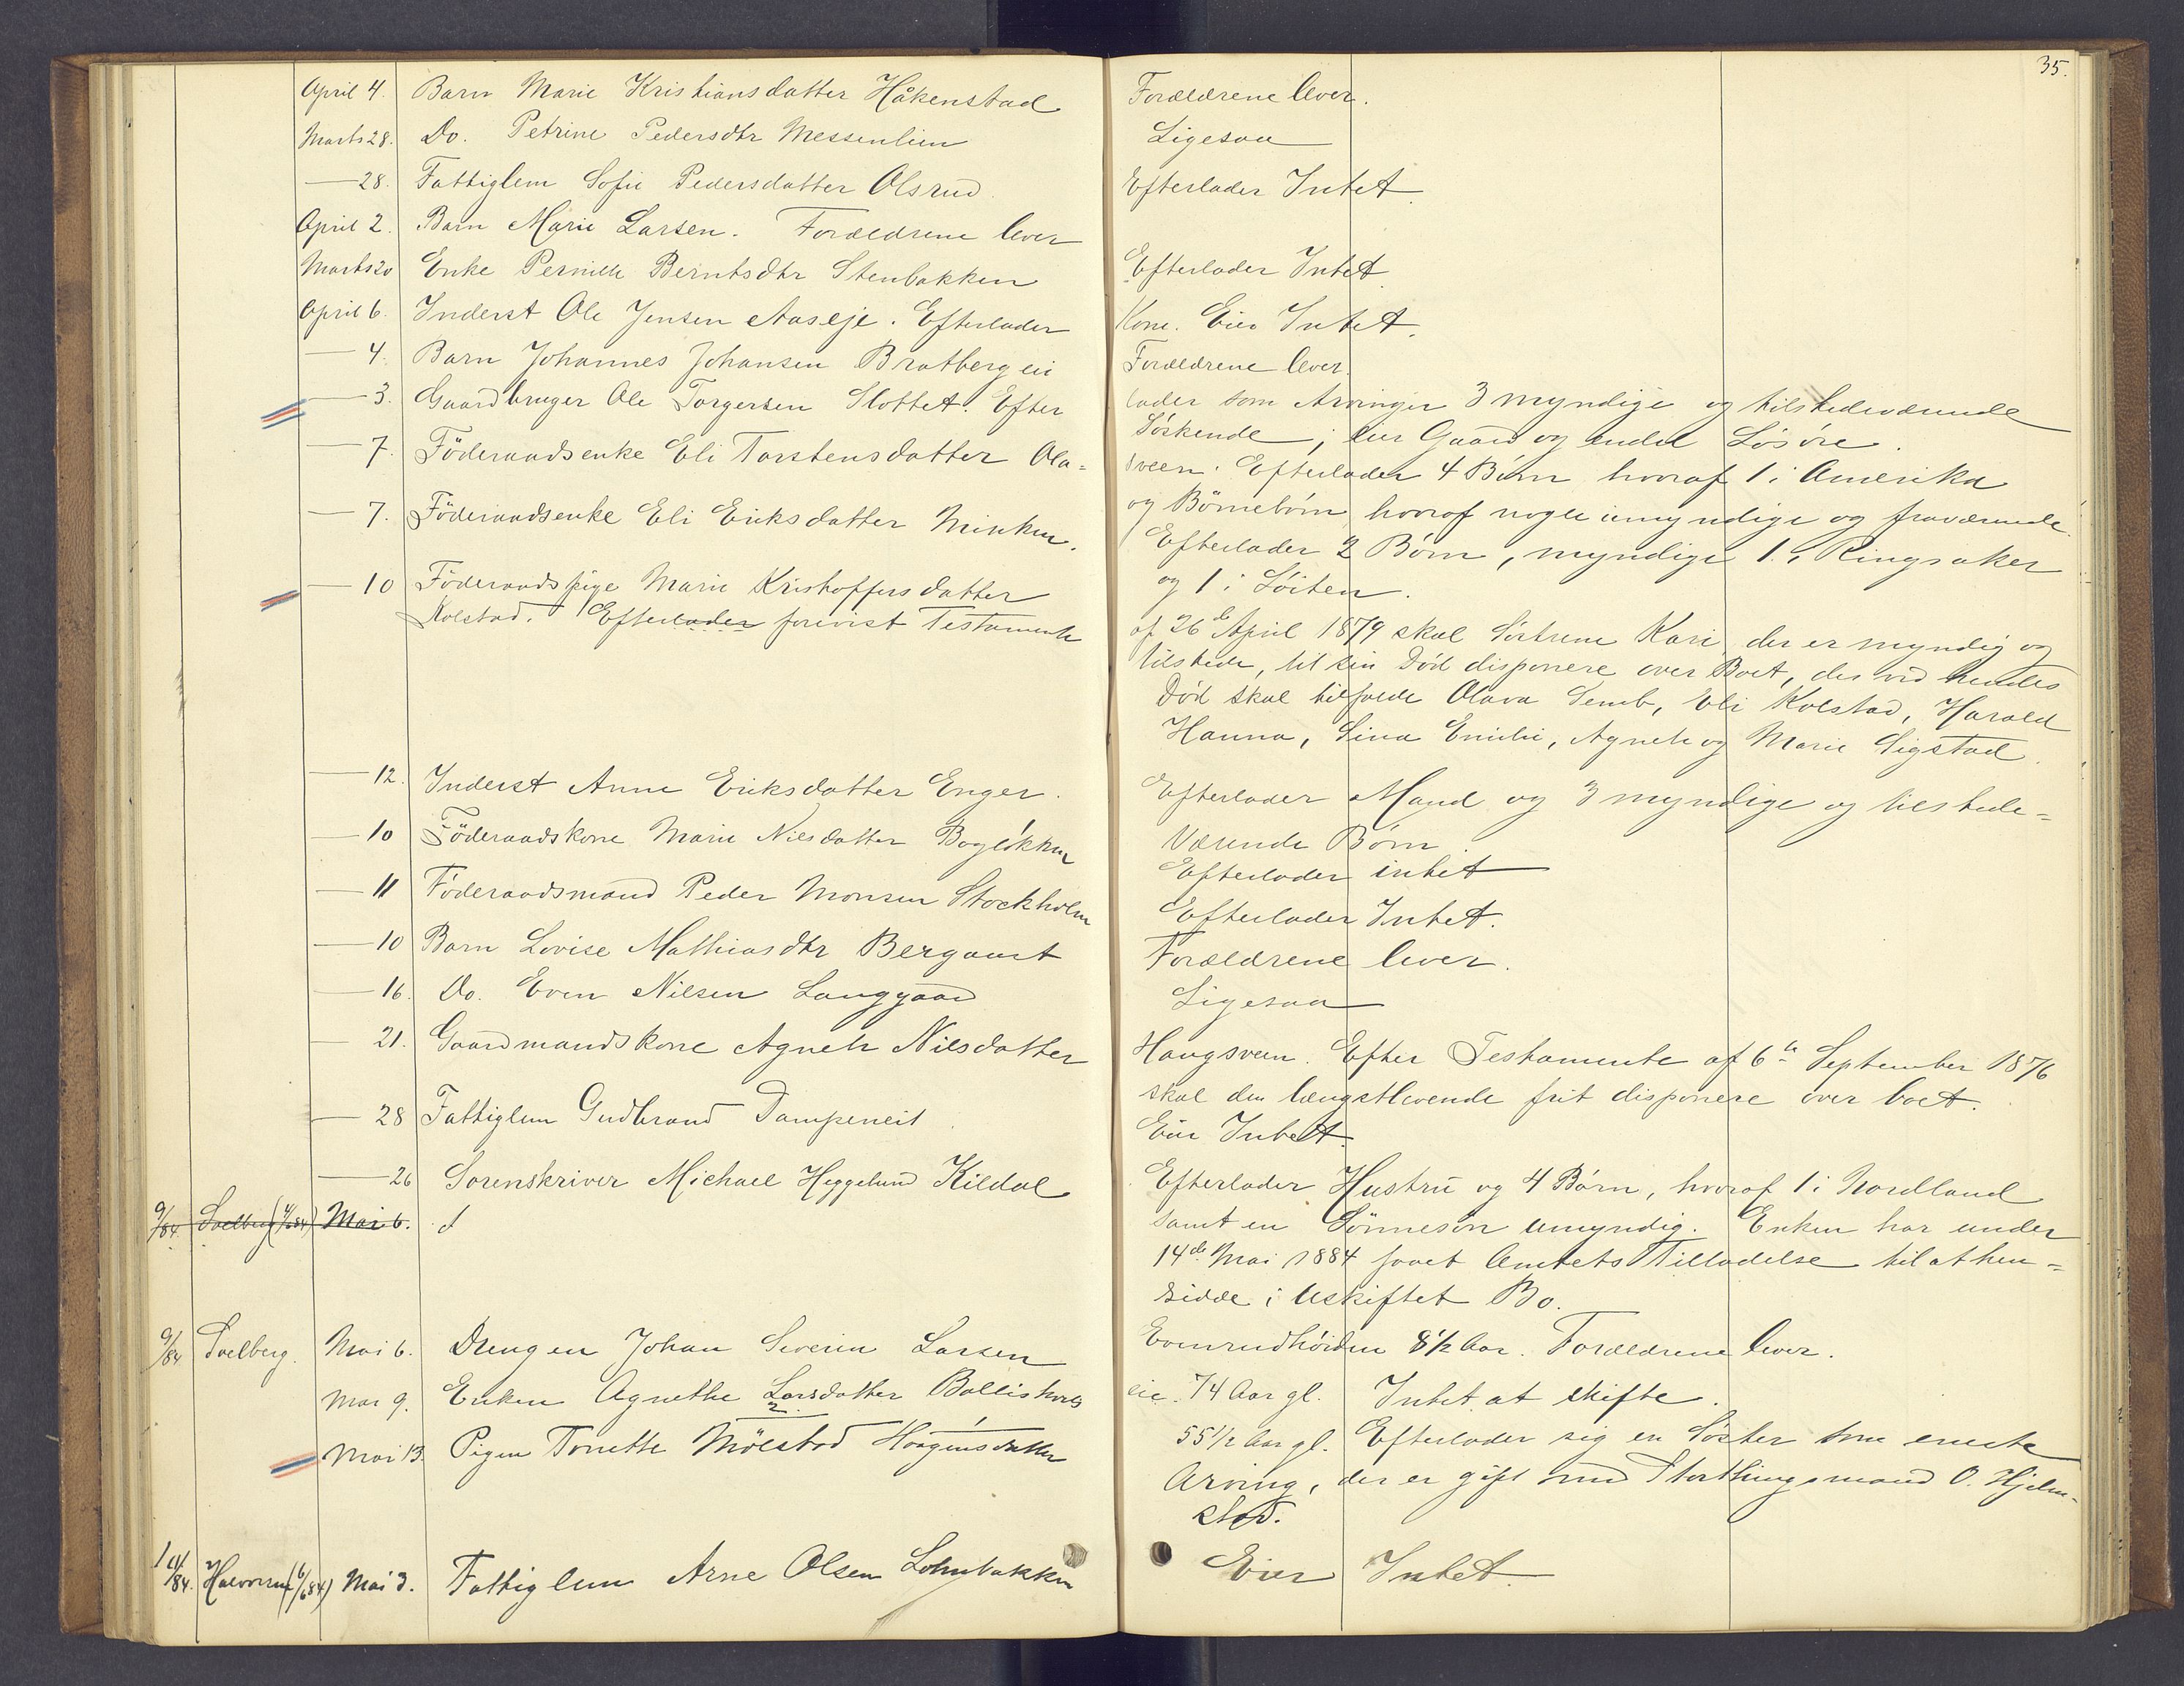 35.
April 4. Barn Marie Kristiansdatter Håkenstad Forældrene lever.
Marts 28. Do. Petrine Pedersdtr Messenlien Ligesaa
— 28. Fattiglem Sofie Pedersdatter Olsrud Efterlader Intet.
April 2. Barn Marie Larsen. Forældrene lever
Marts 20 Enke Pernille Berntsdtr Stenbakken Efterlader Intet.
April 6. Inderst Ole Jensen Aaseje. Efterlader Kone. Eier Intet.
— 4. Barn Johannes Johansen Bratberg eie Forældrene lever.
— 3. Gaardbruger Ole Torgersen Slottet. Efter lader som Arvinger 3 myndige og tilstedeværende
Söskende; eier Gaard og endel Lösöre.
— 7. Föderaadsenke Eli Torstensdatter Ola= sveen. Efterlader 4 Börn hvoraf 1 i Amerika
og Börnebörn hvoraf nogle umyndige og fraværende.
— 7. Föderaadsenke Eli Eriksdatter Minken. Efterlader 2 Börn, myndige 1 i Ringsaker
og 1 i Löiten.
— 10 Föderaadspige Marie Kristoffersdatter
Kolstad. Efterlader forevist Testamente af 26de April 1879 skal Söstrene Kari, der er myndig og
tilstede, til sin Död disponere over Boet, der ved hendes
Död skal tilfalde Olava Semb, Eli Kolstad, Harald
Hanna, Lina Emilie, Agnete og Marie Sigstad.
— 12. Inderst Anne Eriksdatter Enger. Efterlader Mand og 3 myndige og tilstede=
værende Börn.
— 10 Föderaadskone Marie Nilsdatter Baglökken Efterlader intet
— 11 Föderaadsmand Peder Monsen Stockholm Efterlader Intet.
— 10 Barn Lovise Mathiasdtr Bergaust Forældrene lever.
— 16. Do. Even Nilsen Langgaard Ligesaa
— 21. Gaardmandskone Agnete Nilsdatter Haugsveen. Efter Testamente af 6te September 1876
skal den længstlevende frit disponere over boet.
— 28 Fattiglem Gudbrand Dampeneie Eier Intet.
— 26 Sorenskriver Michael Heggelund Kildal Efterlader Hustru og 4 Börn, hvoraf 1 i Nordland
9/84. Svelberg Mai 6. samt en Sönnesön umyndig. Enken har under
14de Mai 1884 faaet Amtets Tilladelse til at hen=
sidde i Uskiftet Bo.
9/84 Svelberg. Mai 6. Drengen Johan Severin Larsen Evenrudhöiden 8 1/2 Aar. Forældrene lever.
Mai 9. Enken Agnethe Larsdatter Ballishoel eie. 74 Aar gl. Intet at skifte.
Mai 13. Pigen Tonette Mölstad Haagensdatter 55 1/2 Aar gl. Efterlader sig en Söster som eneste
Arving, der er gift med Storthingsmand O. Hjelm-
stad.
Halvorsen Mai 3. Fattiglem Arne Olsen Lohnbakken Eier Intet.